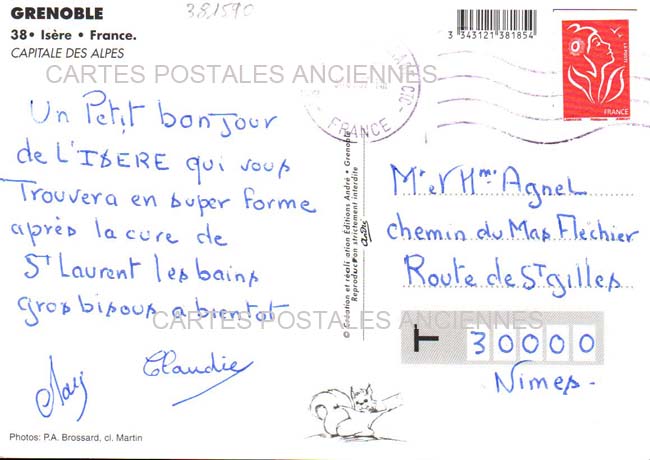 GRENOBLE
38• Isère • France.
CAPITALE DES ALPES
381590
3 343121 381854
CARTES POSTALES ANCIENNES
LA POSTE
FRANCE
FRANCE
Un Petit bonjour
de L'ISERE qui vous
Trouvera en super forme
après la cure de
St Laurent les bains
gros bisous a bientot
Claudie
© Création et réalisation Éditions André • Grenoble
Reproduction strictement interdite
André
Mr et Mme Agnel
chemin du Mas Flechier
Route de St gilles
30000
Nimes-
CARTES POSTALES ANCIENNES
Photos: P.A. Brossard, cl. Martin